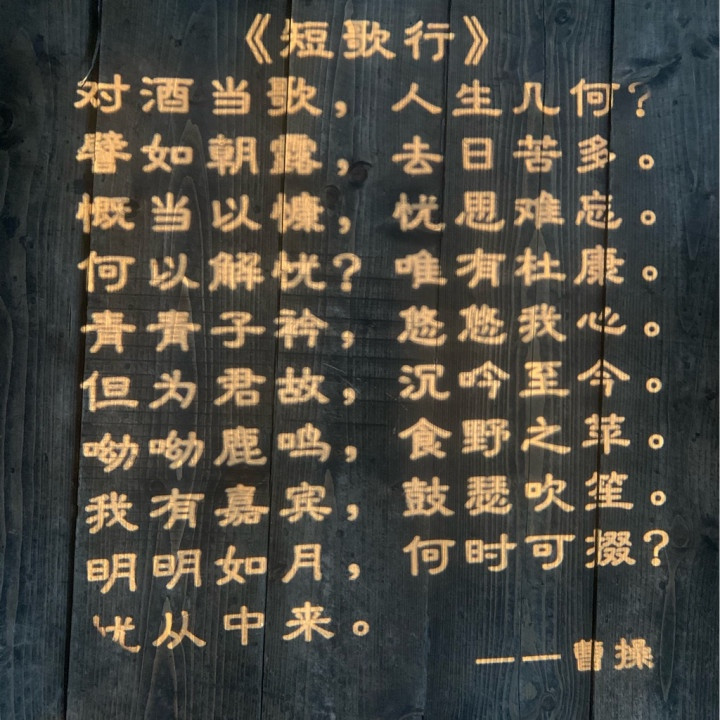 《短歌行》
对酒当歌，人生几何？
譬如朝露，去日苦多。
慨当以慷，忧思难忘。
何以解忧？唯有杜康。
青青子衿，悠悠我心。
但为君故，沉吟至今。
呦呦鹿鸣，食野之苹。
我有嘉宾，鼓瑟吹笙。
明明如月，何时可掇？
忧从中来。
——曹操